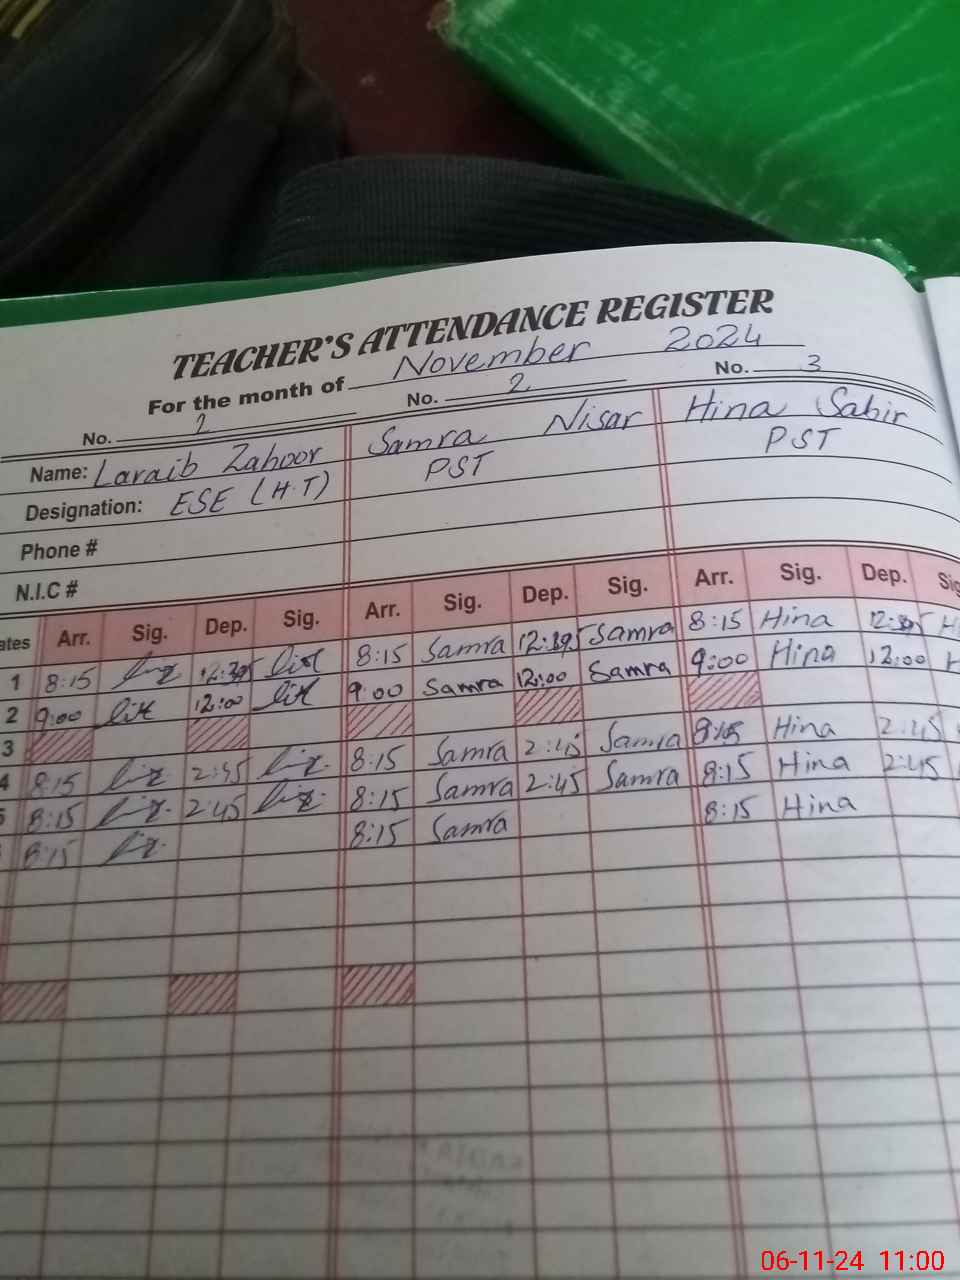 TEACHER'S ATTENDANCE REGISTER
For the month of November 2024
No. 1 No. 2 No. 3
Name: Laraib Zahoor Samra Nisar Hina Sabir
Designation: ESE (H.T) PST PST
Phone #
N.I.C #
ates Arr. Sig. Dep. Sig. Arr. Sig. Dep. Sig. Arr. Sig. Dep. Sig
1 8:15 8:15 Samra Samra 8:15 Hina H
2 9:00 12:00 9:00 Samra 12:00 Samra 9:00 Hina 12:00 H
3
4 8:15 2:45 8:15 Samra 2:45 Samra Hina 2:45
5 8:15 2:45 8:15 Samra 2:45 Samra 8:15 Hina 2:45
8:15 8:15 Samra 8:15 Hina
06-11-24 11:00